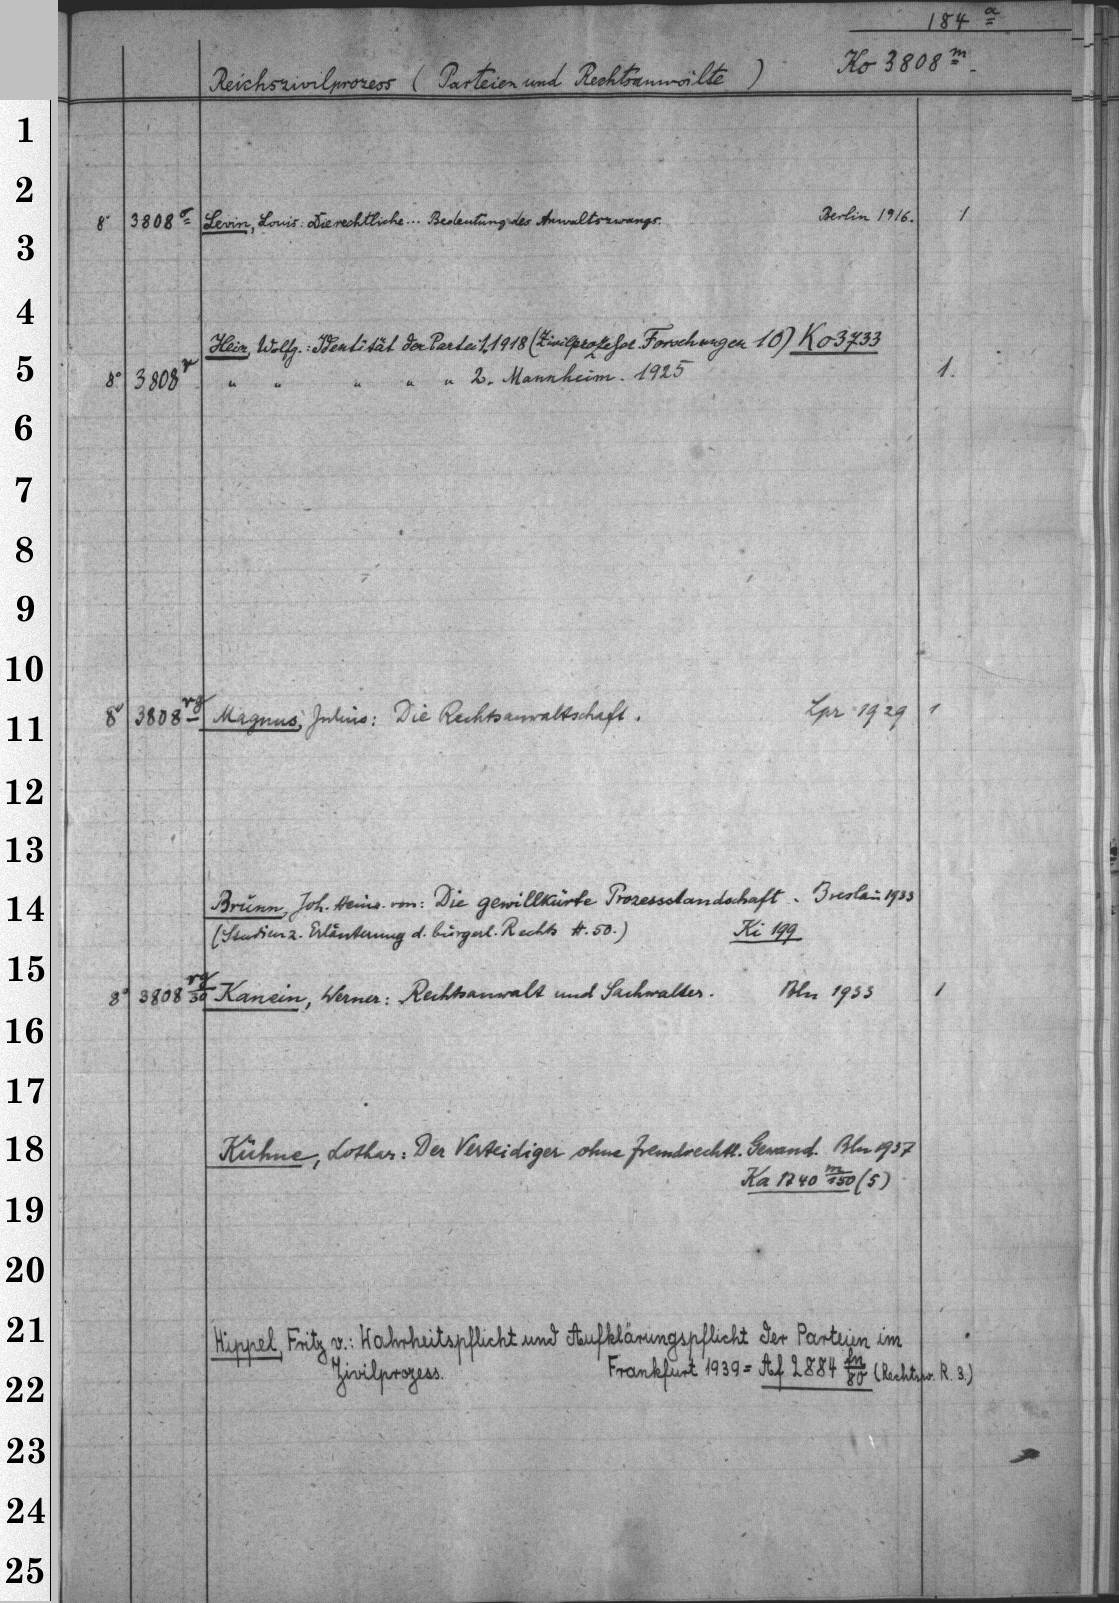 184 a
Ko 3808 m.
Reichszivilprozess (Parteien und Rechtsanwälte)
1
2
8° 3808 Levin, Louis: Die rechtliche... Bedeutung des Anwaltszwangs. Berlin 1916. 1
3
4
Hein, Wolfg.: Identität der Partei 1. 1918 (Zivilprozessr. Forschungen 10) Ko 3733
5
8° 3808 r " " " " " 2. Mannheim. 1925 1.
6
7
8
9
10
8° 3808 Magnus, Julius: Die Rechtsanwaltschaft. Lpz 1929 1
11
12
13
14
Brunn, Joh. Heinr. von: Die gewillkürte Prozessstandschaft. Breslau 1933
(Studien z. Erläuterung d. bürgerl. Rechts H. 50.) Ki 199
15
8° 3808 Kanein, Werner: Rechtsanwalt und Sachwalter. Bln 1933 1
16
17
18
Kühne, Lothar: Der Verteidiger ohne fremdrechtl. Gewand. Bln 1937
Ka 1240 m/150 (5)
19
20
21
Hippel, Fritz v.: Wahrheitspflicht und Aufklärungspflicht der Parteien im
22
Zivilprozess. Frankfurt 1939 = Af 2884 fn/80 (Rechtsw. R. 3.)
23
24
25